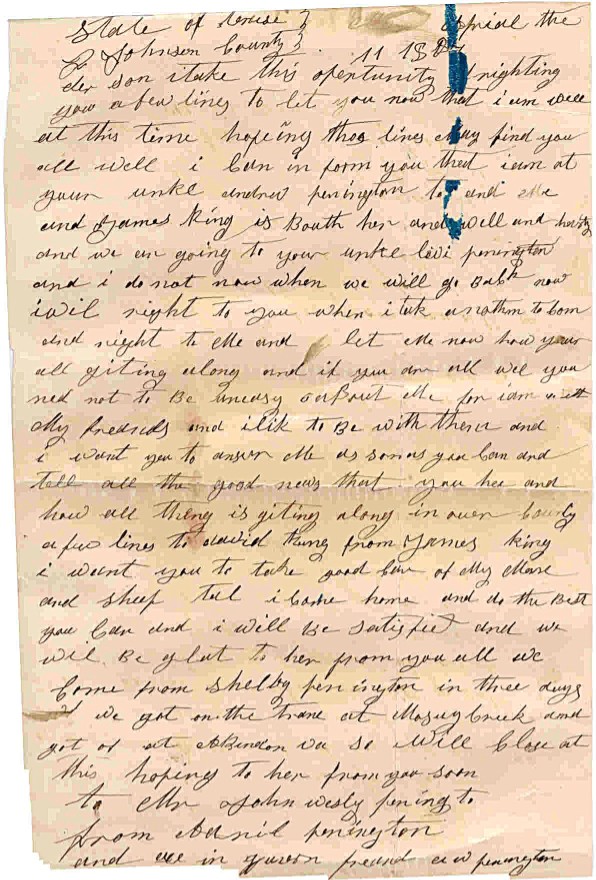 State of tenise } Aprial the
Johnson County } 11 18
der son i take this opertunity righting
you a few lines to let you now that i am well
at this time hopeing thes lines may find you
all well i Can in form you that i am at
your unkl andrew penington to and Me
and James King is Bouth her and well and harty
and we are going to your unkl levi penington
and i do not now when we will go Back now
i wil right to you when i tak a nothn to Com
and right to Me and let Me now how your
all giting along and if you are all wel you
ned not to Be uneasy a Bout Me for i am with
My freinds and i lik to Be with them and
i want you to answr Me as son as you Can and
tell all the good news that you hee and
how all thing is giting along in ouer County
a few lines to david King from James King
i want you to take good Car of My Mare
and sheep tel i Come home and do the Best
you Can and i will Be Satisfie and we
wil Be glat to her from you all we
Come from Shelby penington in thre days
we got on the trane at Mosy Creek and
got of at Abindon va so will Close at
this hoping to her from you soon
to Mr John wesly pening to
from penington
and in freand penington